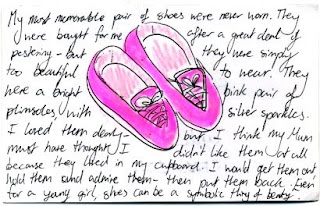 My most memorable pair of shoes were never worn. They
were bought for me after a great deal of
pestering - but they were simply
too beautiful to wear. They
were a bright pink pair of
plimsoles, with silver sparkles.
I loved them dearly but I think my Mum
must have thought I didn't like them at all
because they lived in my cupboard. I would get them out,
hold them and admire them - then put them back. Even
for a young girl, shoes can be a symbolic thing of beauty.